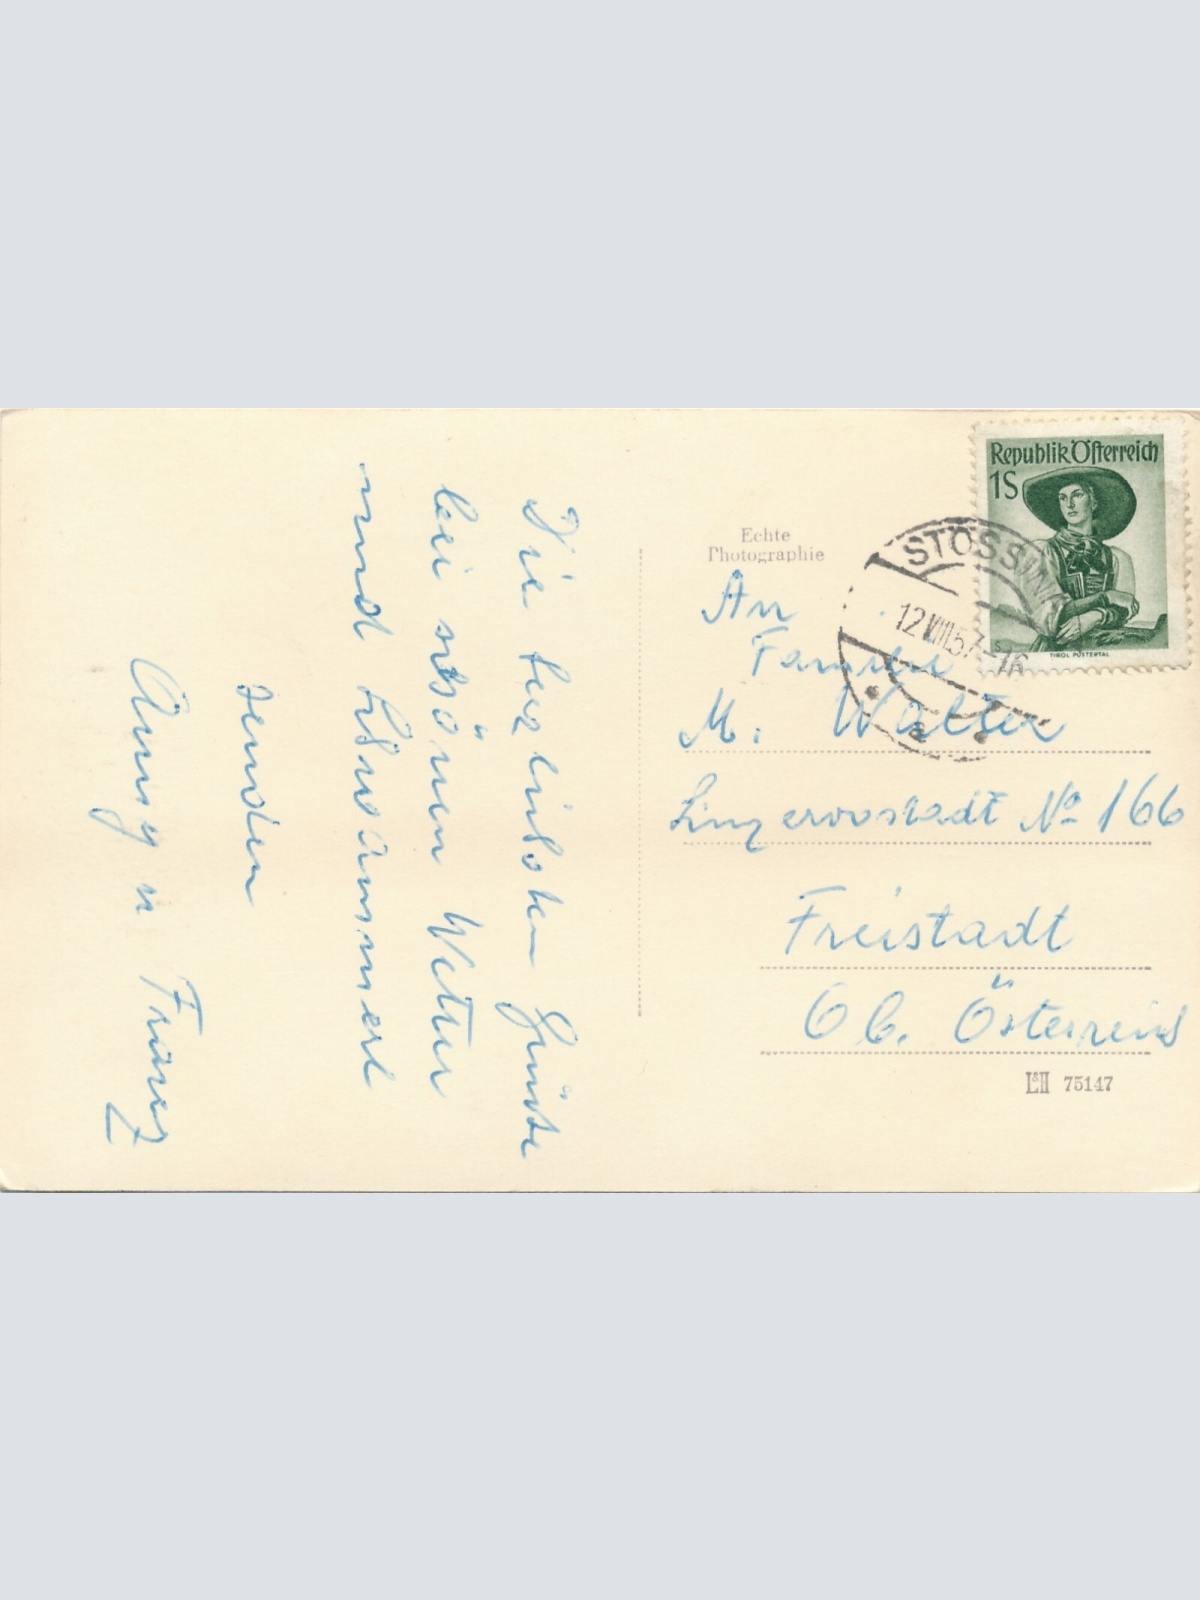 Die herzlichsten Grüße
bei schönen Wetter
und Schwammerl
senden
u Franz
Echte
Photographie
An
Familie
M. Walter
Linzervorstadt No 166
Freistadt
Ob. Österreich
L&H 75147
Republik Österreich
1S
TIROL PUSTERTAL
STÖSSING
12.VIII.57-16